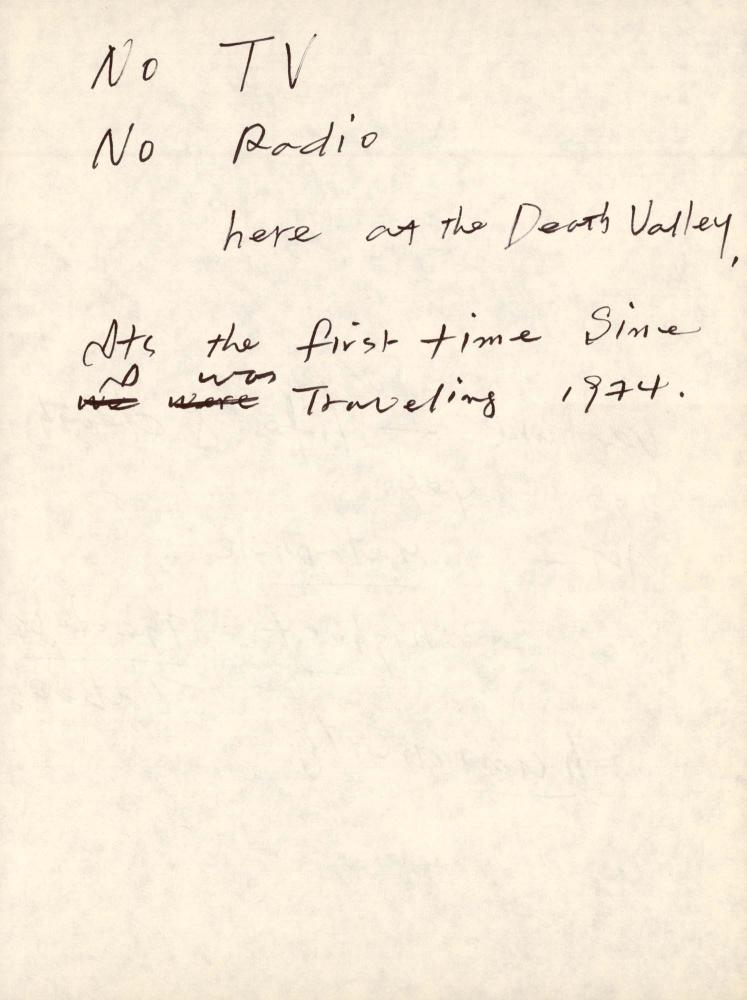 No TV
No Radio
here at the Death Valley,
Its the first time Since
I was
we were Traveling 1974.